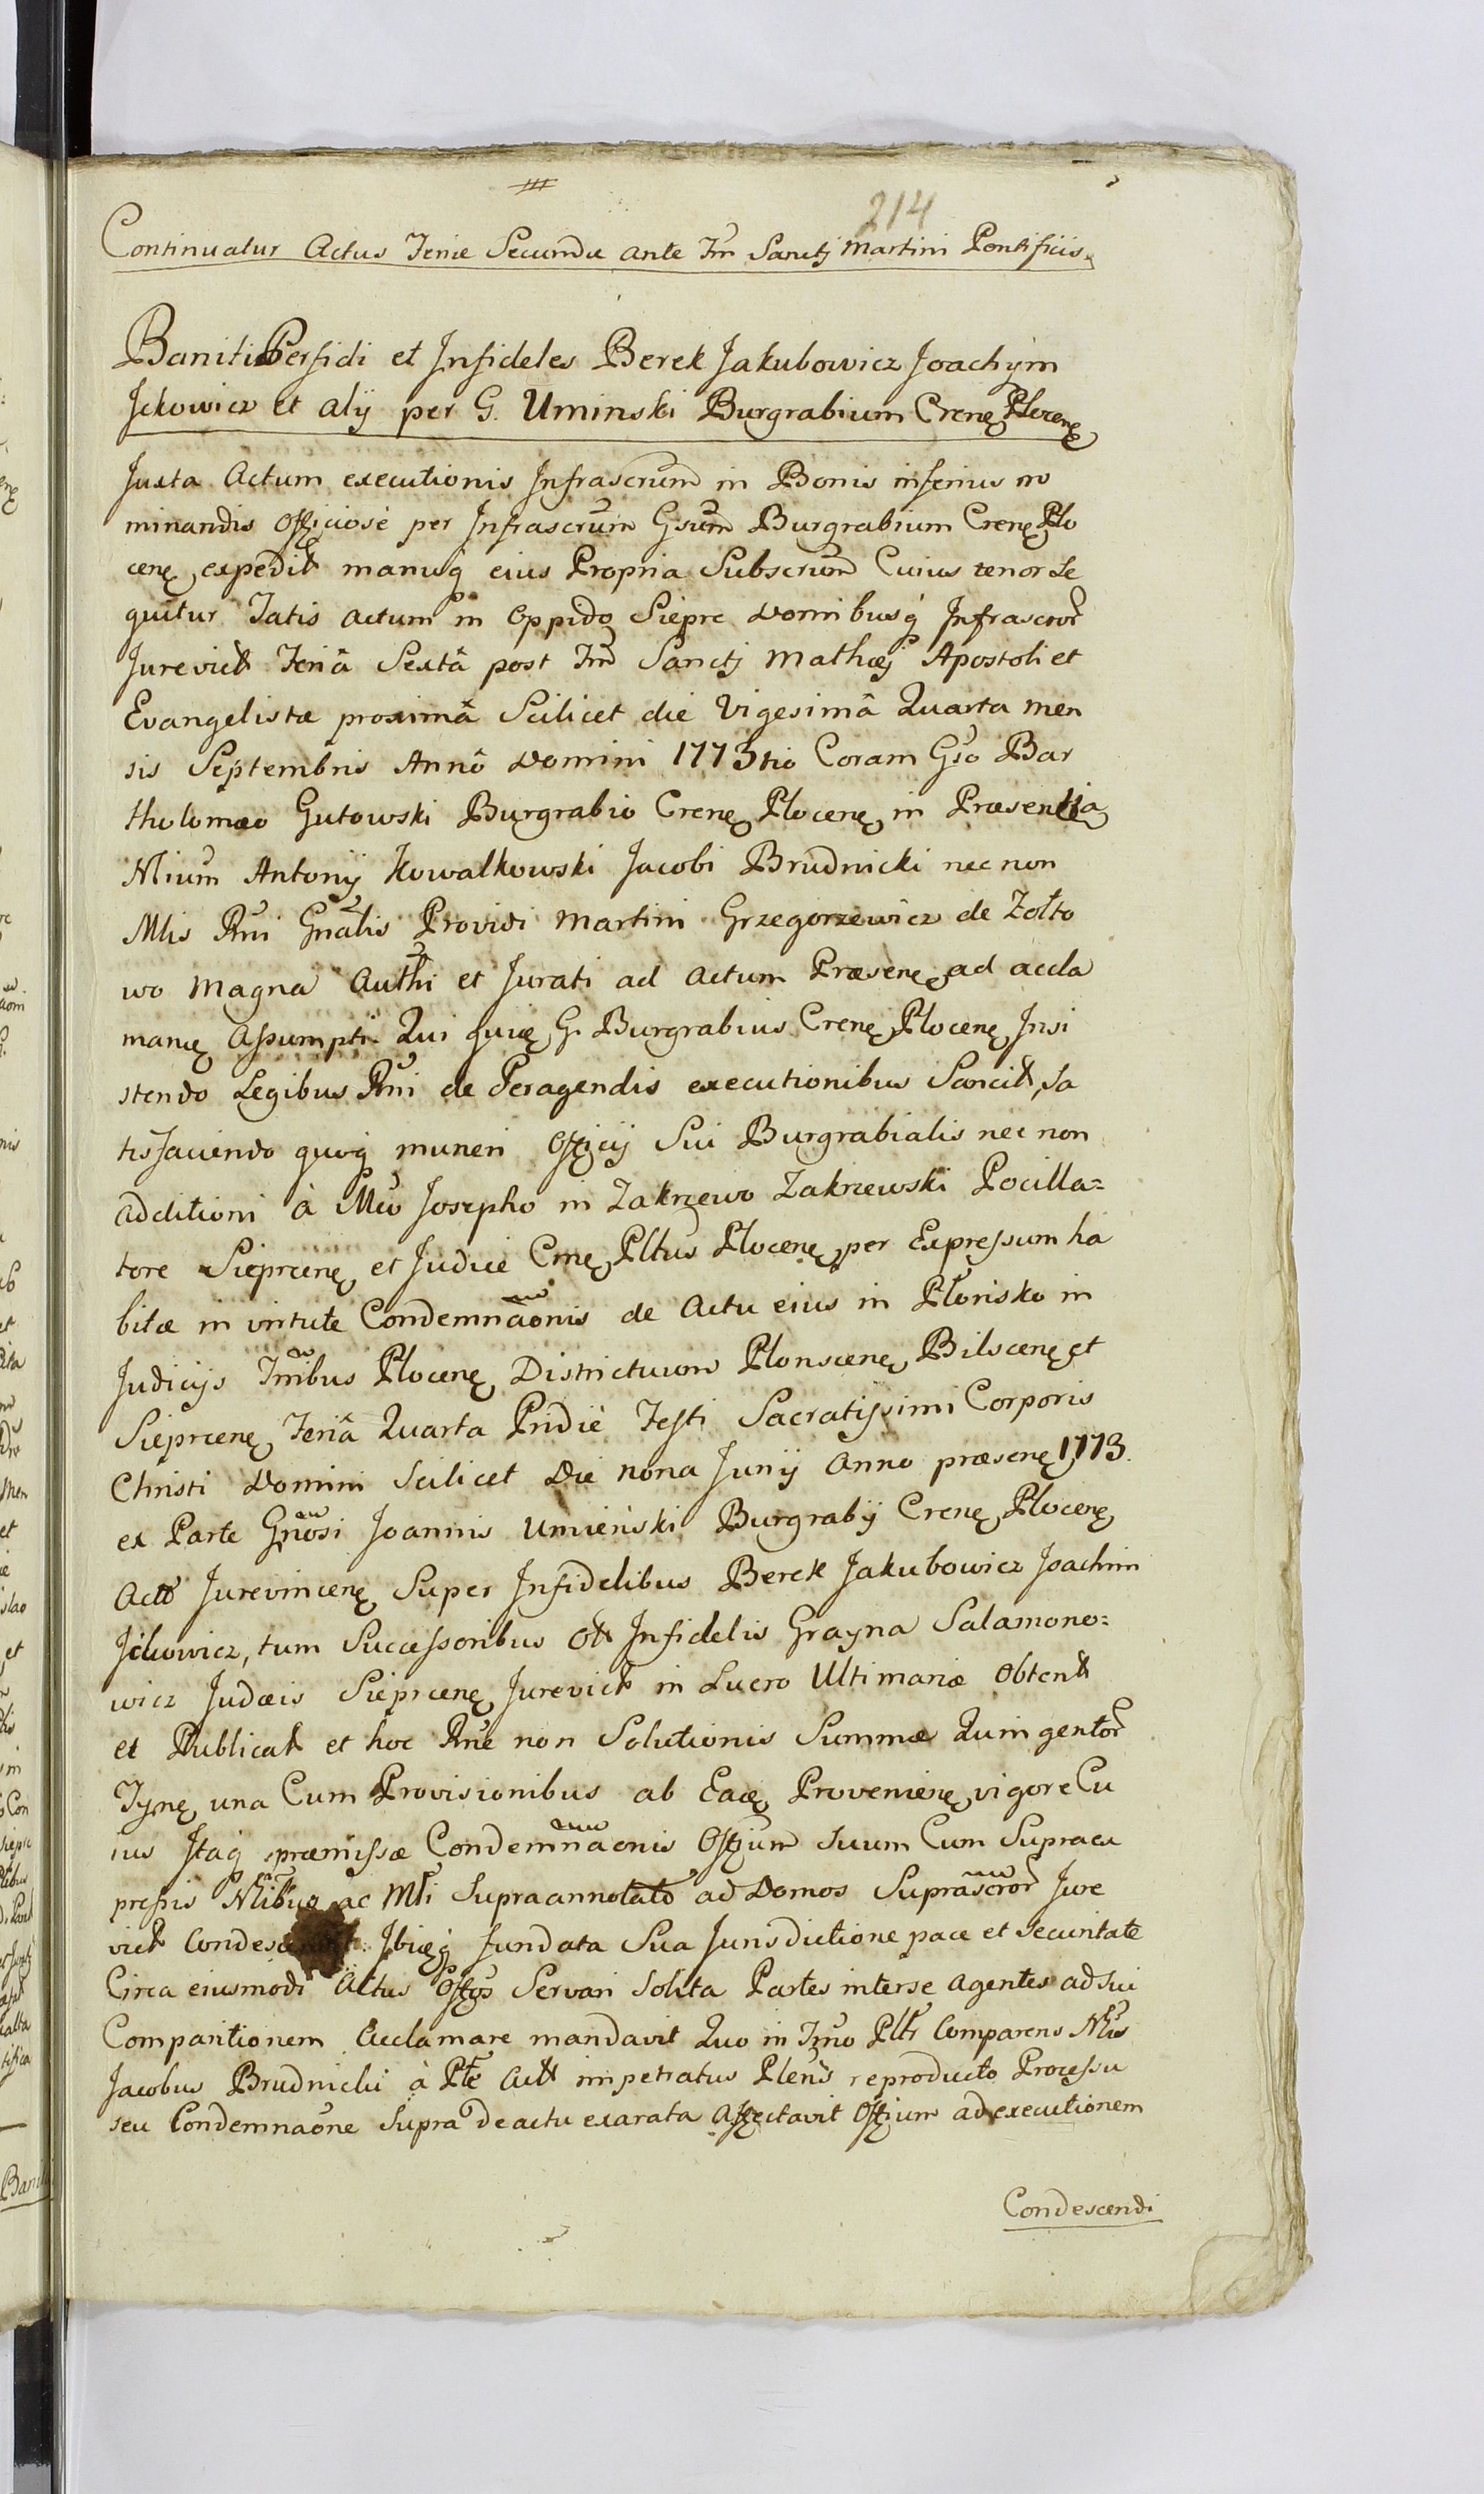 214
Continuatur Actus Feriæ Secundæ ante Fm̃ Sancti Martini Pontificis
Baniti Perfidi et Infideles Berek Jakubowicz Joachym
Jckowicz et alij per G. Uminski Burgrabium Crenę Plocenę
Juxta Actum executionis Infrascrum̃ in Bonis inferius no
minandis Officiosè per Infrascrum̃ Gsum̃ Burgrabium Crenę Plo
cenę expedit̃ manuq́ eius Propria Subscrum̃ Cuius tenor se
quitur Talis Actum in Oppido Sieprc Domibusq́ Infrascror̃
Jurevict̃ Feriâ Sextâ post Fm̃ Sancti Mathæj Apostoli et
Evangelistæ proximâ Scilicet die Vigesimâ Quarta men
sis Septembris Annô Domini 1773tio Coram Gso Bar
tholomæo Gutowski Burgrabio Crenę Plocenę in Præsentia
Nlium̃ Antonij Kowalkowski Jacobi Brudnicki nec non
Mlis Rni Gnalis Providi Martini Grzegorzewicz de Zołto
wo Magna Authi et Jurati ad Actum Præsenę ad accla
manę Assumpti Qui quię G. Burgrabius Crenę Plocenę Insi
stendo Legibus Rni de Peragendis executionibus Sancit̃, Sa
tisfaciendo quoq́ muneri Officij Sui Burgrabialis nec non
additioni à Mco Josepho in Zakrzewo Zakrzewski Pocilla=
tore Sieprcenę et Judice Crnę Pltus Plocenę per Expressum ha
bitæ in virtute Condemnaõnis de Actu eius in Płonsko in
Judicijs Trribus Plocenę Districtuum Plonscenę Bilscenę et
Sieprcenę Feriâ Quarta Pridiè Festi Sacratissimi Corporis
Christi Domini Scilicet Die nona Junij Anno præsenę 1773.
ex Parte Gnosi Joannis Umieński Burgrabij Crenę Plocenę
Actõ Jurevincenę Super Infidelibus Berek Jakubowicz Joachim
Jckowicz, tum Successoribus Ol̃ Infidelis Grayna Salamono=
wicz Judæis Sieprcenę Jurevict̃ in Lucro Ultimariæ Obtent̃
et Publicat̃ et hoc Rne non Solutionis Summæ Quingentor̃
Tynę una Cum Provisionibus ab Eaę Provenienę vigore Cu
ius Itaq́ præmissæ Condemnaõnis Offium̃ Suum Cum Supraex
pressis Nlibus ac Mli Supraannotatõ ad Domos Suprascror̃ Jure
vict̃ Ibięq́ fundata Sua Jurisdictione pace et Securitate
Circa eiusmodi Actus Offos Servari Solita Partes interse Agentes ad Sui
Comparitionem Acclamare mandavit Quo in Tmno Pltr Comparens Nlis
Jacobus Brudnicki à Pte Act̃ impetratus Plenś reproducto Processu
seu Condemnaõne Supra de actu exarata Affectavit Offium ad executionem
Condescendi